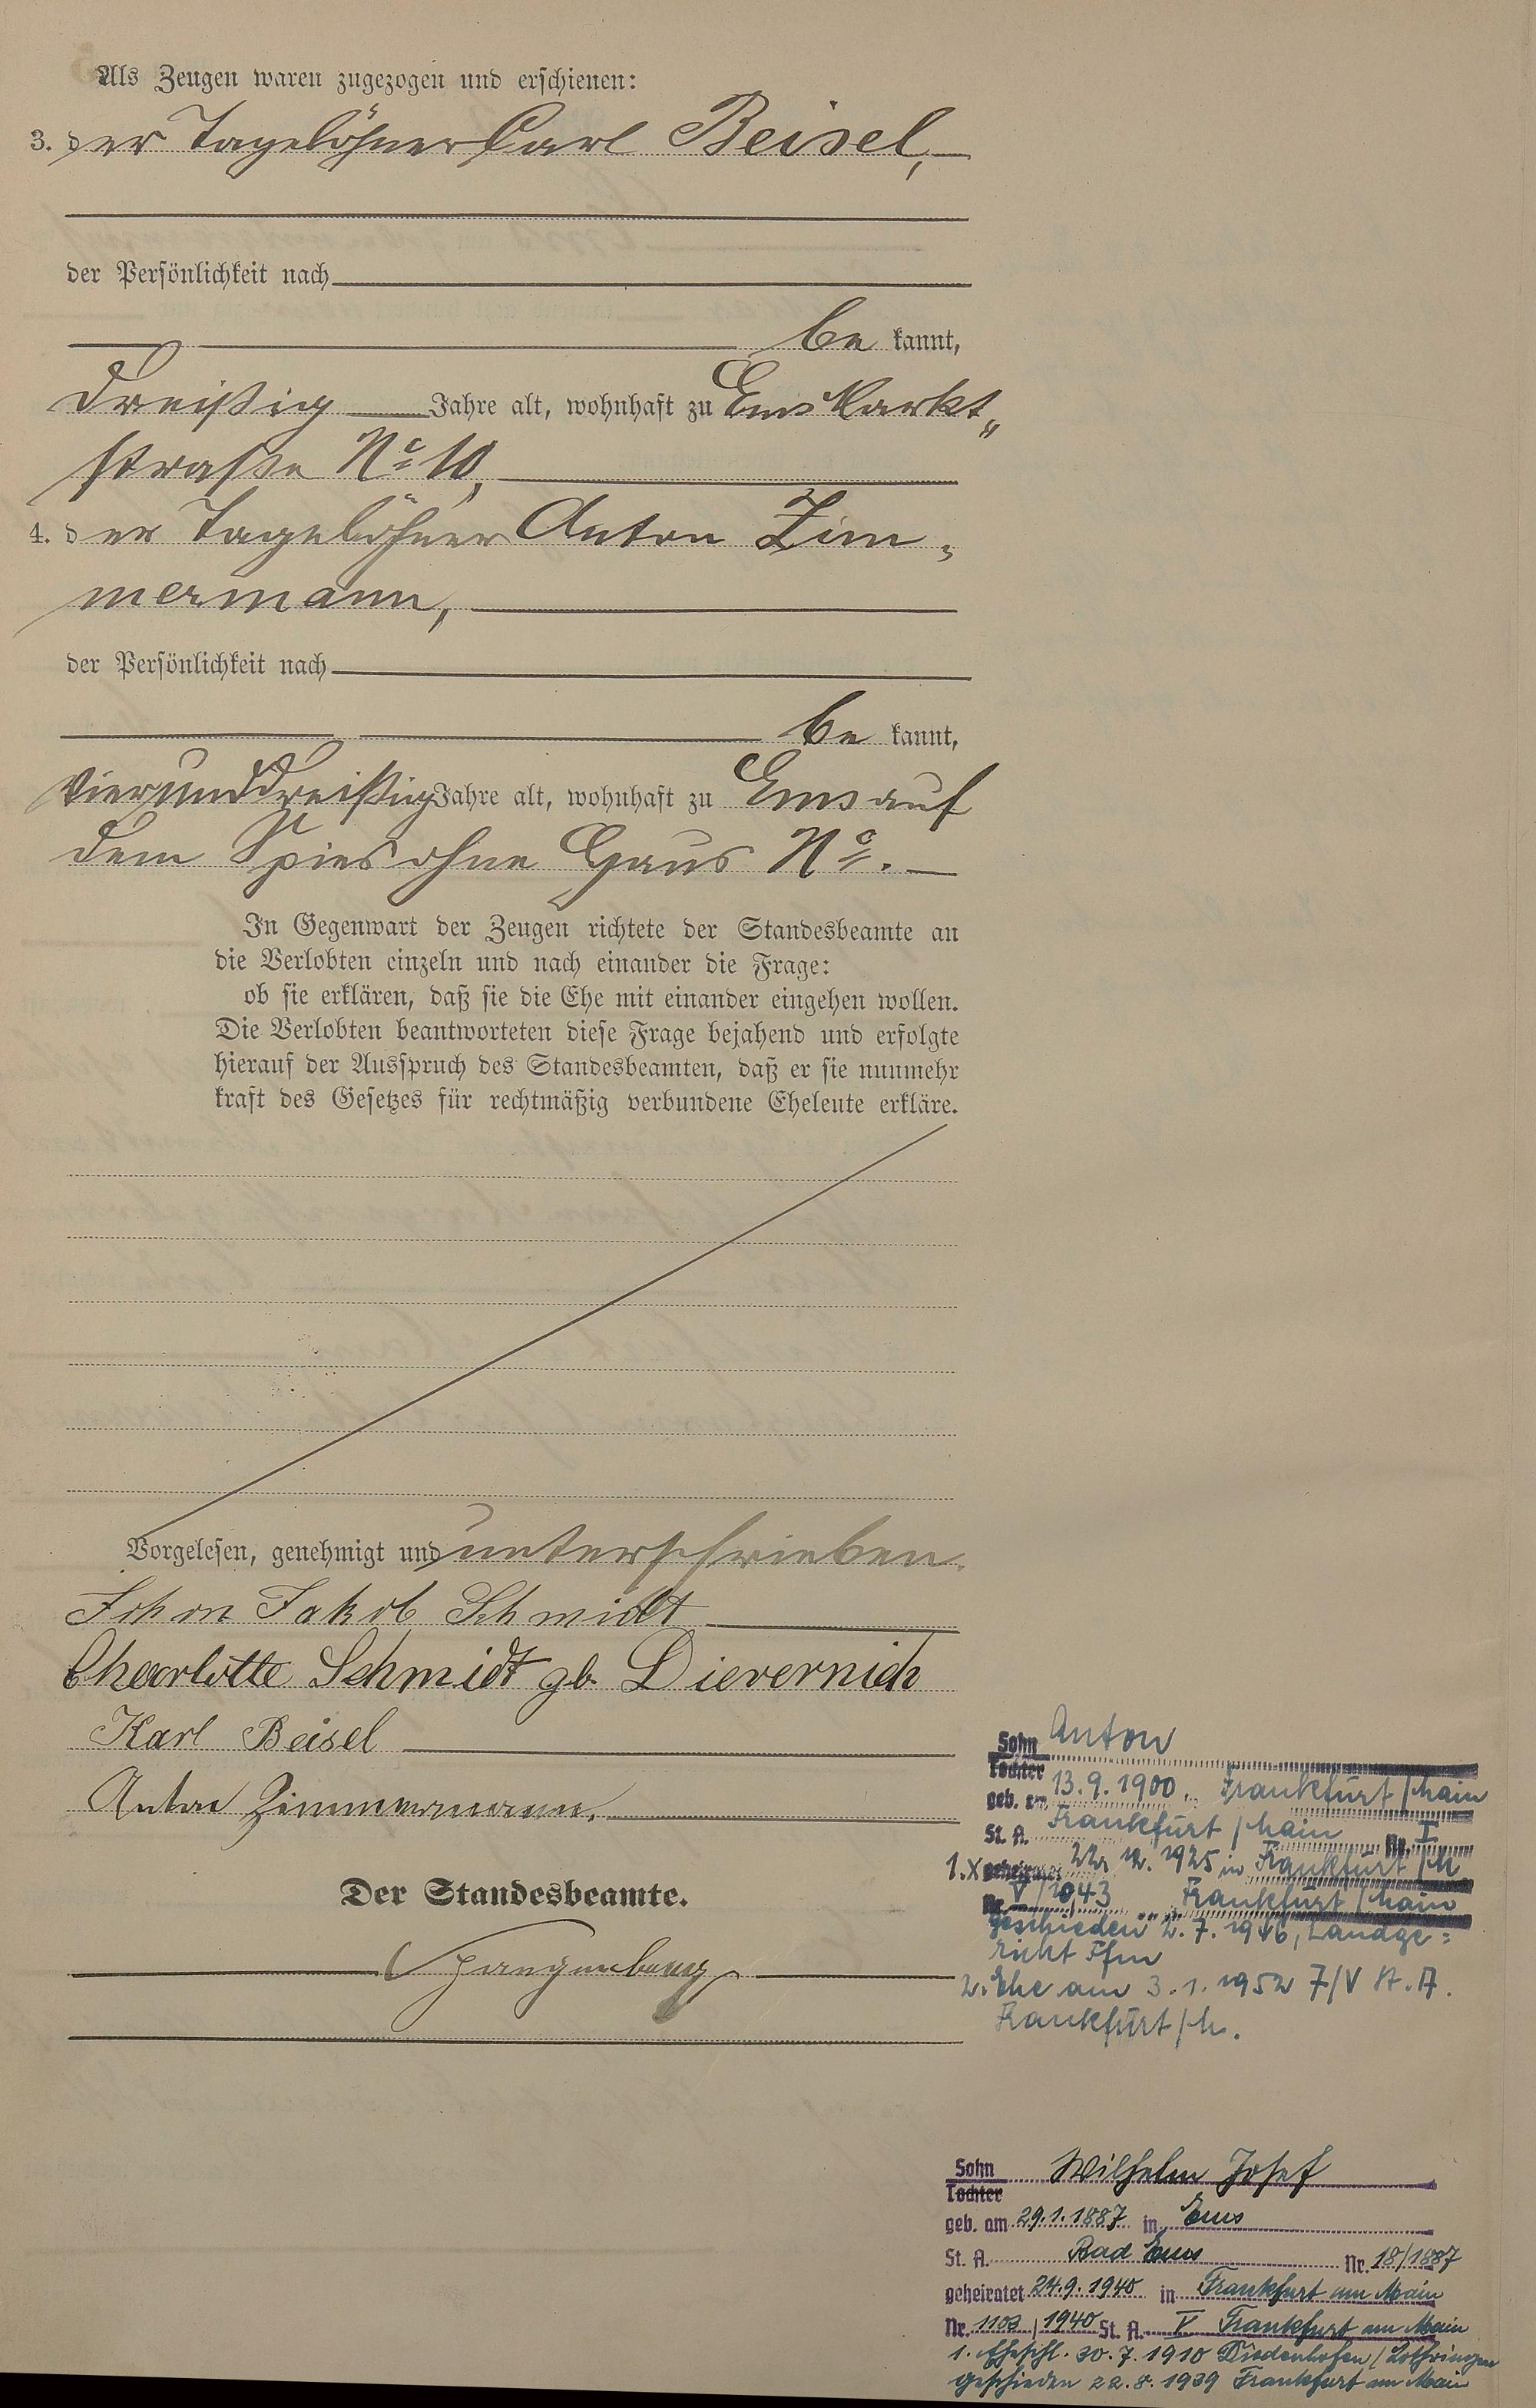 Als Zeugen waren zugezogen und erschienen:
3. der Tagelöhner Carl Beisel,
der Persönlichkeit nach
be kannt,
dreißig Jahre alt, wohnhaft zu Ems Markt„
straße No 10,
4. der Tagelöhner Anton Zim„
mermann,
der Persönlichkeit nach
be kannt,
vierunddreißig Jahre alt, wohnhaft zu Ems auf
dem Spies ohne Haus No.
In Gegenwart der Zeugen richtete der Standesbeamte an
die Verlobten einzeln und nach einander die Frage:
ob sie erklären, daß sie die Ehe mit einander eingehen wollen.
Die Verlobten beantworteten diese Frage bejahend und erfolgte
hierauf der Ausspruch des Standesbeamten, daß er sie nunmehr
kraft des Gesetzes für rechtmäßig verbundene Eheleute erkläre.
Vorgelesen, genehmigt und unterschrieben.
Johon Jakob Schmidt
Charlotte Schmidt gb. Dievernich
Karl Beisel
Anton Zimmermann.
Der Standesbeamte.
Spangenberg
Sohn Anton
Tochter
geb. am 13.9.1900 Frankfurt/Main
St. A. Frankfurt/Main Nr. I
1.X geheiratet 22.12.1925 in Frankfurt/M
Nr. V/1043 Frankfurt/Main
geschieden 2.7.1946, Landge=
richt Ffm
2. Ehe am 3.1.1952 7/V St.A.
Frankfurt/M.
Sohn Wilhelm Josef
Tochter
geb. am 29.1.1887 in Ems
St. A. Bad Ems Nr. 18/1887
geheiratet 24.9.1940 in Frankfurt am Main
Nr. 1103/1940 St. A. V Frankfurt am Main
1. Eheschl. 30.7.1910 Diedenhofen/Lothringen
geschieden 22.8.1939 Frankfurt am Main